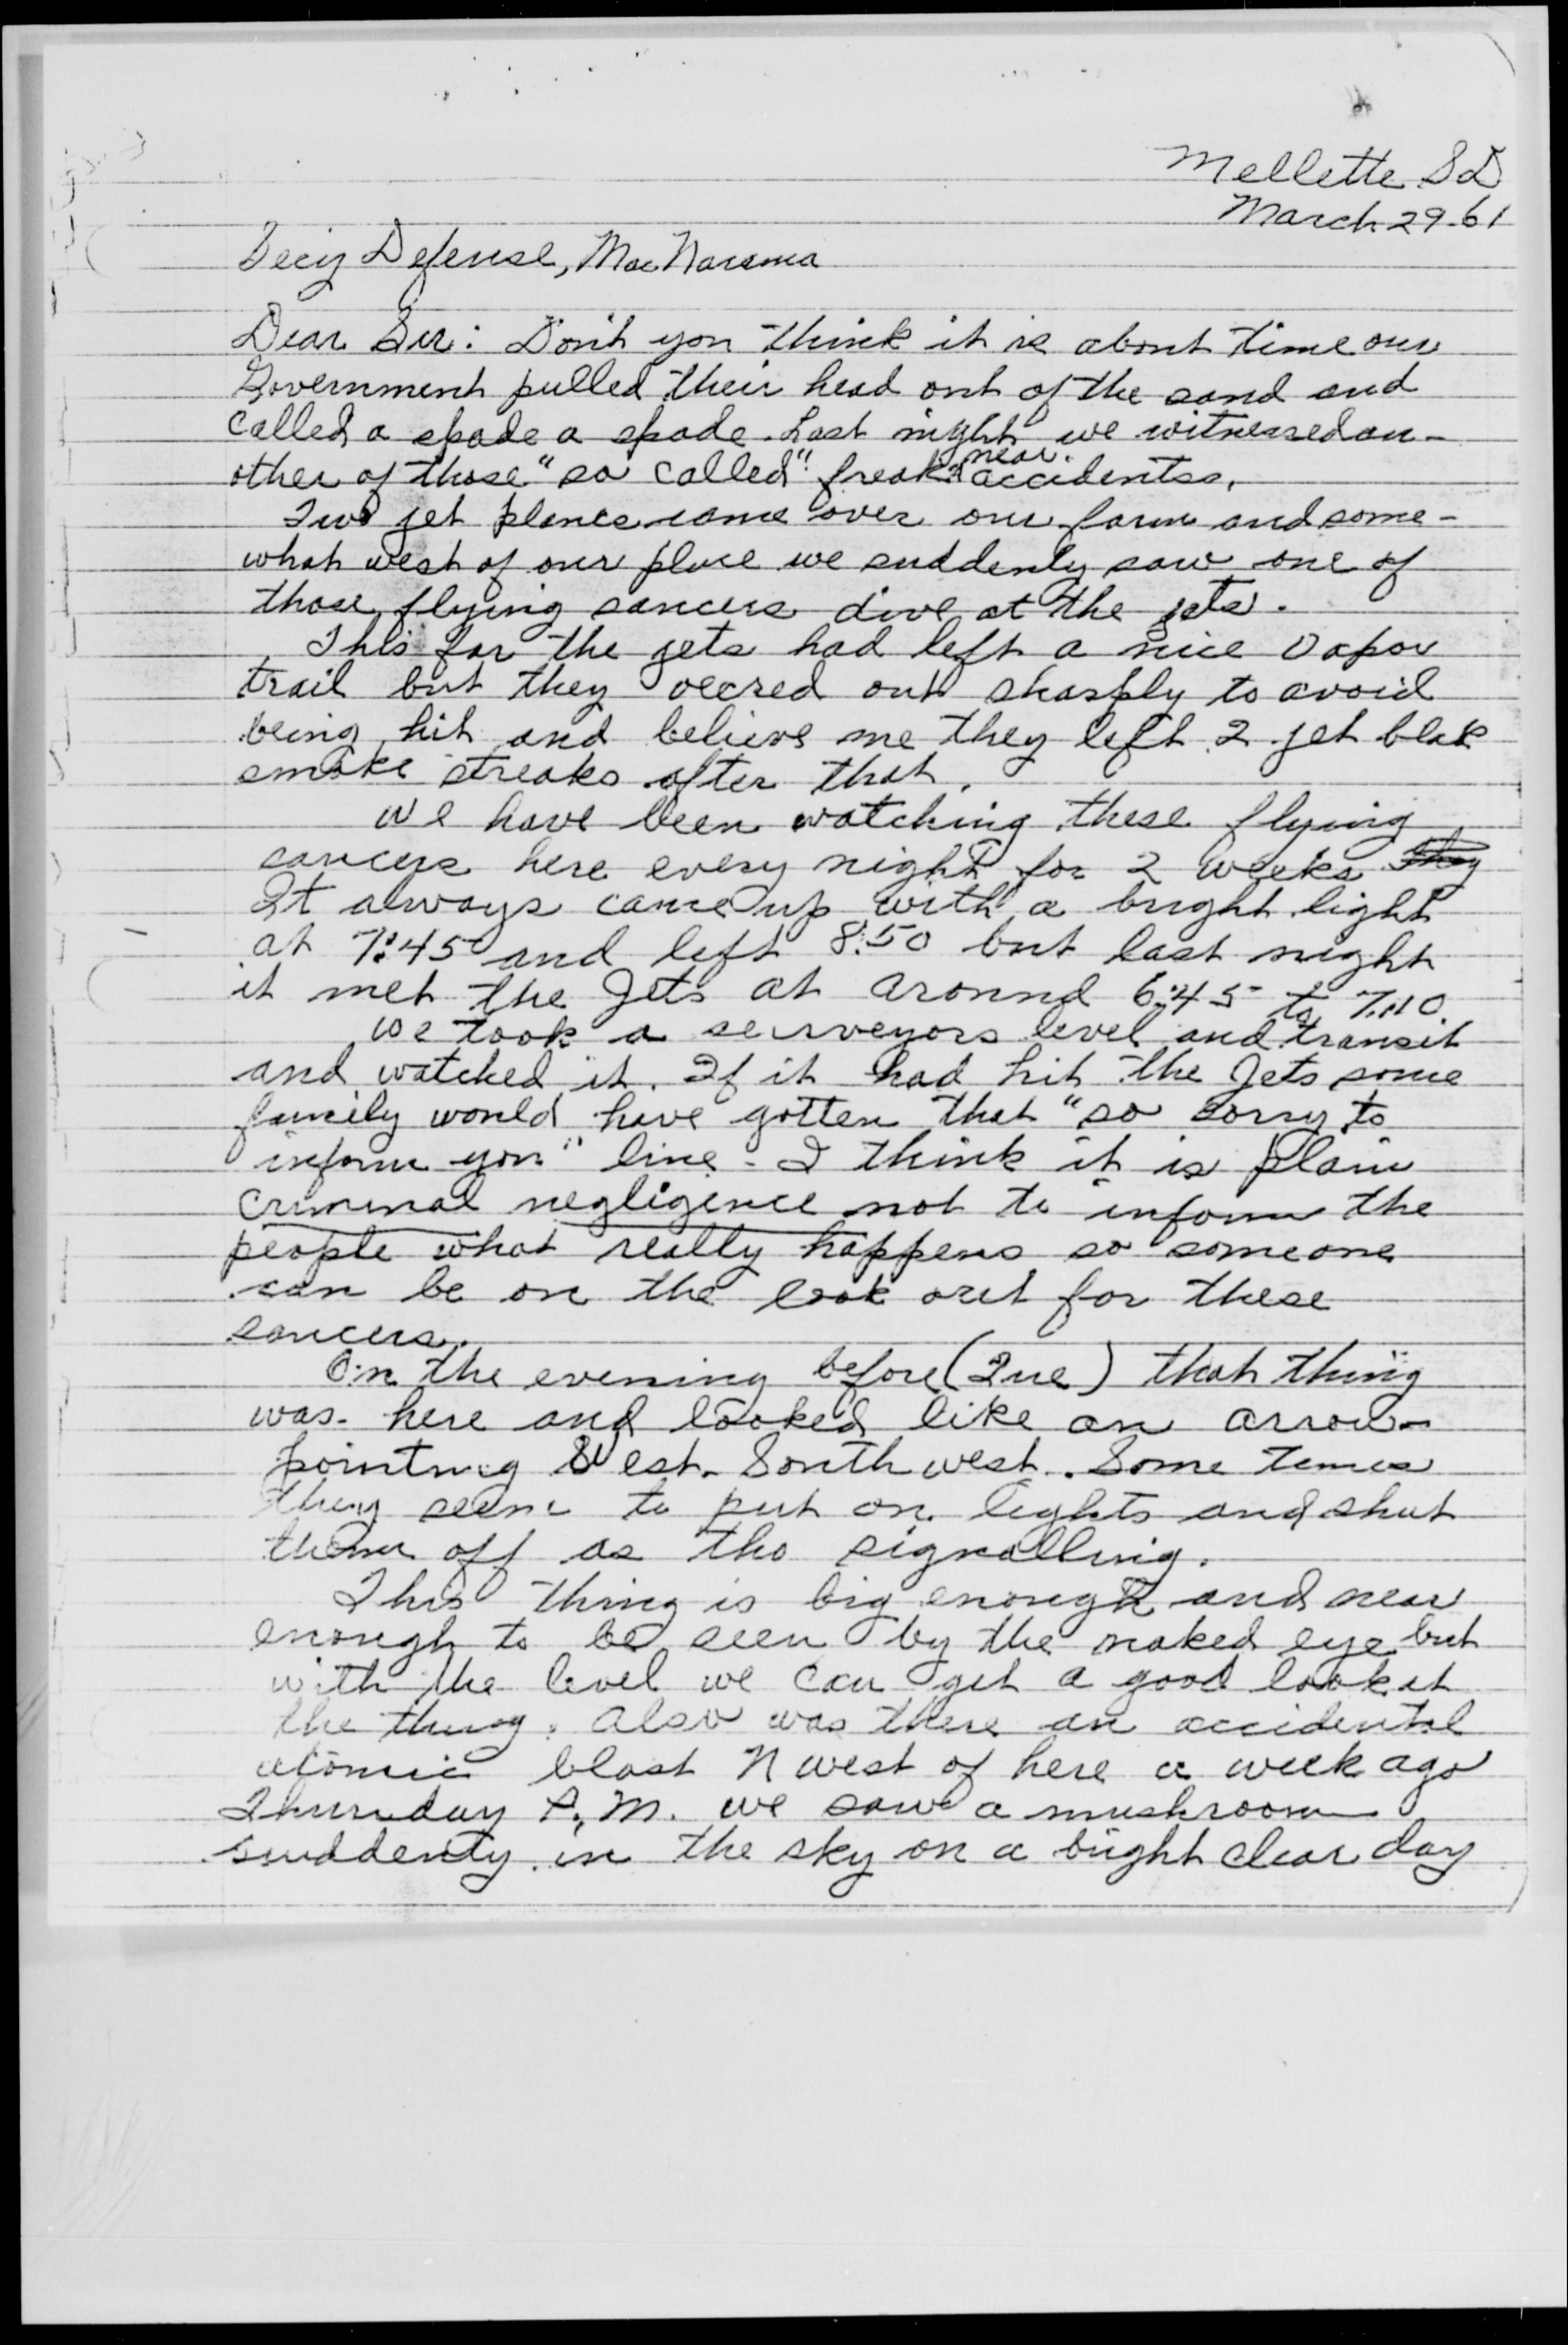 Mellette S D
March 29-61
Secy Defense, MacNarama
Dear Sir: Don't you think it is about time our
Government pulled their head out of the sand and
called a spade a spade. Last night we witnessed an-
near
other of those "so called" freak accidents.
Two jet planes came over our farm and some-
what west of our place we suddenly saw one of
those flying saucers dive at the jets.
This far the jets had left a nice vapor
trail but they veered out sharply to avoid
being hit and believe me they left 2 jet blak
smoke streaks after that.
We have been watching these flying
saucers here every night for 2 weeks They
It always came up with a bright light
at 7:45 and left 8:50 but last night
it met the Jets at around 6:45 to 7:10.
We took a surveyors level and transit
and watched it. If it had hit the Jets some
family would have gotten that "so sorry to
inform you" line - I think it is plain
criminal negligence not to inform the
people what really happens so someone
can be on the look out for these
saucers.
On the evening before (Tue) that thing
was here and looked like an arrow
pointing West-Southwest. Some times
they seem to put on lights and shut
them off as tho signalling.
This thing is big enough and near
enough to be seen by the naked eye but
with the level we can get a good look at
the thing. Also was there an accidental
atomic blast N west of here a week ago
Thursday P.M. we saw a mushroom
suddenty in the sky on a bright clear day